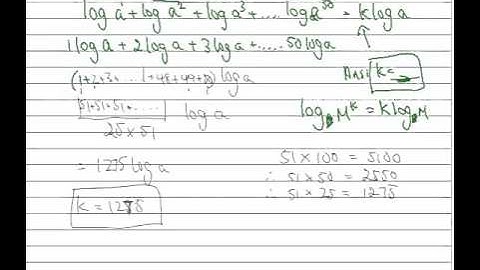 log a¹ + log a² + log a³ + .... log a⁵⁰ = k log a
1 log a + 2 log a + 3 log a + ..... 50 log a
(1+2+3+ ... +48+49+50) log a
Ans: k=
51+51+51+.... log a
25 x 51
log Mᵏ = k log M
= 1275 log a
k = 1275
51 x 100 = 5100
∴ 51 x 50 = 2550
∴ 51 x 25 = 1275